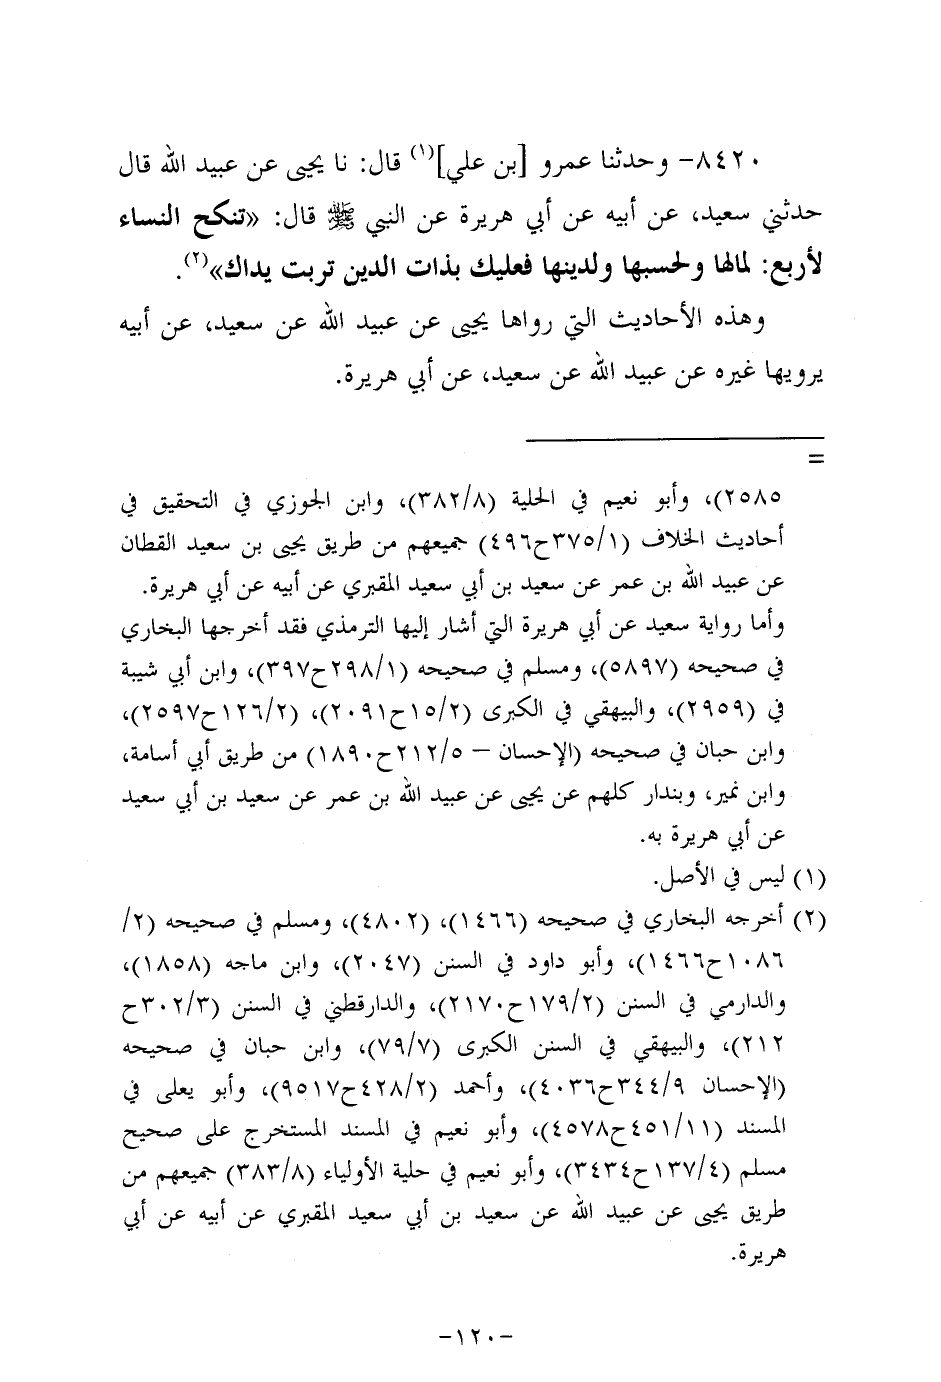 ٨٤٢٠- وحدثنا عمرو [بن علي](١) قال: نا يحيى عن عبيد الله قال
حدثني سعيد، عن أبيه عن أبي هريرة عن النبي ﷺ قال: «تنكح النساء
لأربع: لمالها ولحسبها ولدينها فعليك بذات الدين تربت يداك»(٢).
وهذه الأحاديث التي رواها يحيى عن عبيد الله عن سعيد، عن أبيه
يرويها غيره عن عبيد الله عن سعيد، عن أبي هريرة.
=
٢٥٨٥)، وأبو نعيم في الحلية (٣٨٢/٨)، وابن الجوزي في التحقيق في
أحاديث الخلاف (٣٧٥/١ح٤٩٦) جميعهم من طريق يحيى بن سعيد القطان
عن عبيد الله بن عمر عن سعيد بن أبي سعيد المقبري عن أبيه عن أبي هريرة.
وأما رواية سعيد عن أبي هريرة التي أشار إليها الترمذي فقد أخرجها البخاري
في صحيحه (٥٨٩٧)، ومسلم في صحيحه (٢٩٨/١ح٣٩٧)، وابن أبي شيبة
في (٢٩٥٩)، والبيهقي في الكبرى (١٥/٢ح٢٠٩١)، (١٢٦/٢ح٢٥٩٧)،
وابن حبان في صحيحه (الإحسان – ٢١٢/٥ح١٨٩٠) من طريق أبي أسامة،
وابن نمير، وبندار كلهم عن يحيى عن عبيد الله بن عمر عن سعيد بن أبي سعيد
عن أبي هريرة به.
(١) ليس في الأصل.
(٢) أخرجه البخاري في صحيحه (١٤٦٦)، (٤٨٠٢)، ومسلم في صحيحه (٢/
١٠٨٦ح١٤٦٦)، وأبو داود في السنن (٢٠٤٧)، وابن ماجه (١٨٥٨)،
والدارمي في السنن (١٧٩/٢ح٢١٧٠)، والدارقطني في السنن (٣٠٢/٣ح
٢١٢)، والبيهقي في السنن الكبرى (٧٩/٧)، وابن حبان في صحيحه
(الإحسان ٣٤٤/٩ح٤٠٣٦)، وأحمد (٤٢٨/٢ح٩٥١٧)، وأبو يعلى في
المسند (٤٥١/١١ح٤٥٧٨)، وأبو نعيم في المسند المستخرج على صحيح
مسلم (١٣٧/٤ح٣٤٣٤)، وأبو نعيم في حلية الأولياء (٣٨٣/٨) جميعهم من
طريق يحيى عن عبيد الله عن سعيد بن أبي سعيد المقبري عن أبيه عن أبي
هريرة.
-١٢٠-